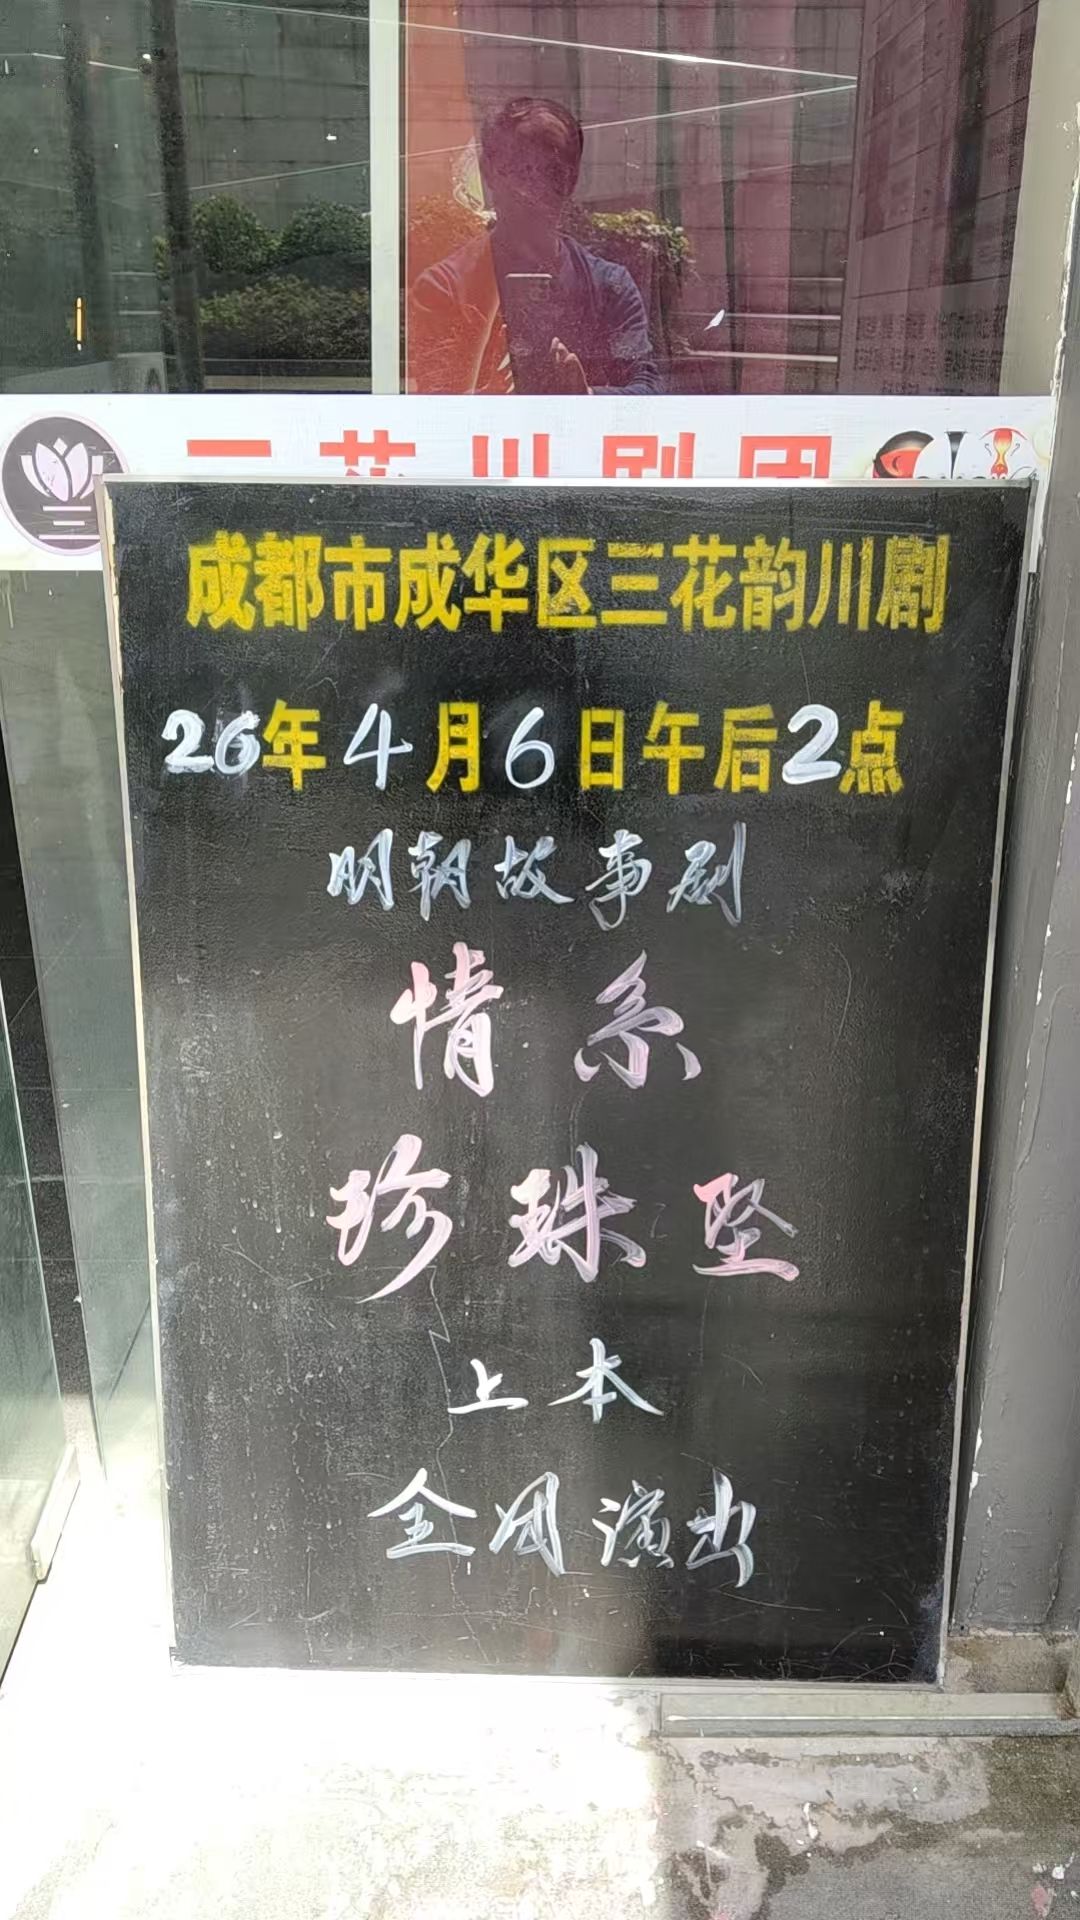 三花川剧团
成都市成华区三花韵川剧
26年4月6日午后2点
明朝故事剧
情系
珍珠坠
上本
全团演出